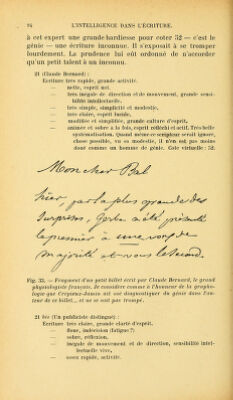 94 L'INTELLIGENCE DANS L'ÉCRITURE.
à cet expert une grande hardiesse pour coter 52 — c'est le
génie — une écriture inconnue. Il s'exposait à se tromper
lourdement. La prudence lui eût ordonné de n'accorder
qu'un petit talent à un inconnu.
21 (Claude Bernard) :
Écriture très rapide, grande activité.
— nette, esprit net.
— très inégale de direction et de mouvement, grande sensi-
bilité intellectuelle.
— très simple, simplicité et modestie,
— très claire, esprit lucide,
— modifiée et simplifiée, grande culture d'esprit,
— animée et sobre à la fois, esprit réfléchi et actif. Très belle
systématisation. Quand même ce scripteur serait ignoré,
chose possible, vu sa modestie, il n'en est pas moins
doué comme un homme de génie. Cote virtuelle : 52.
Mon cher Bal
hier, par la plus grande des
surprises, a été présenté
le premier à une voix de
majorité et vous le second.
Fig. 23. — Fragment d'un petit billet écrit par Claude Bernard, le grand
physiologiste français. Je considère comme à l'honneur de la grapho-
logie que Crépieux-Jamin ait osé diagnostiquer du génie dans l'au-
teur de ce billet... et ne se soit pas trompé.
21 bis (Un publiciste distingué) :
Écriture très claire, grande clarté d'esprit.
— floue, indécision (fatigue ?)
— sobre, réflexion,
— inégale de mouvement et de direction, sensibilité intel-
lectuelle vive,
— assez rapide, activité.